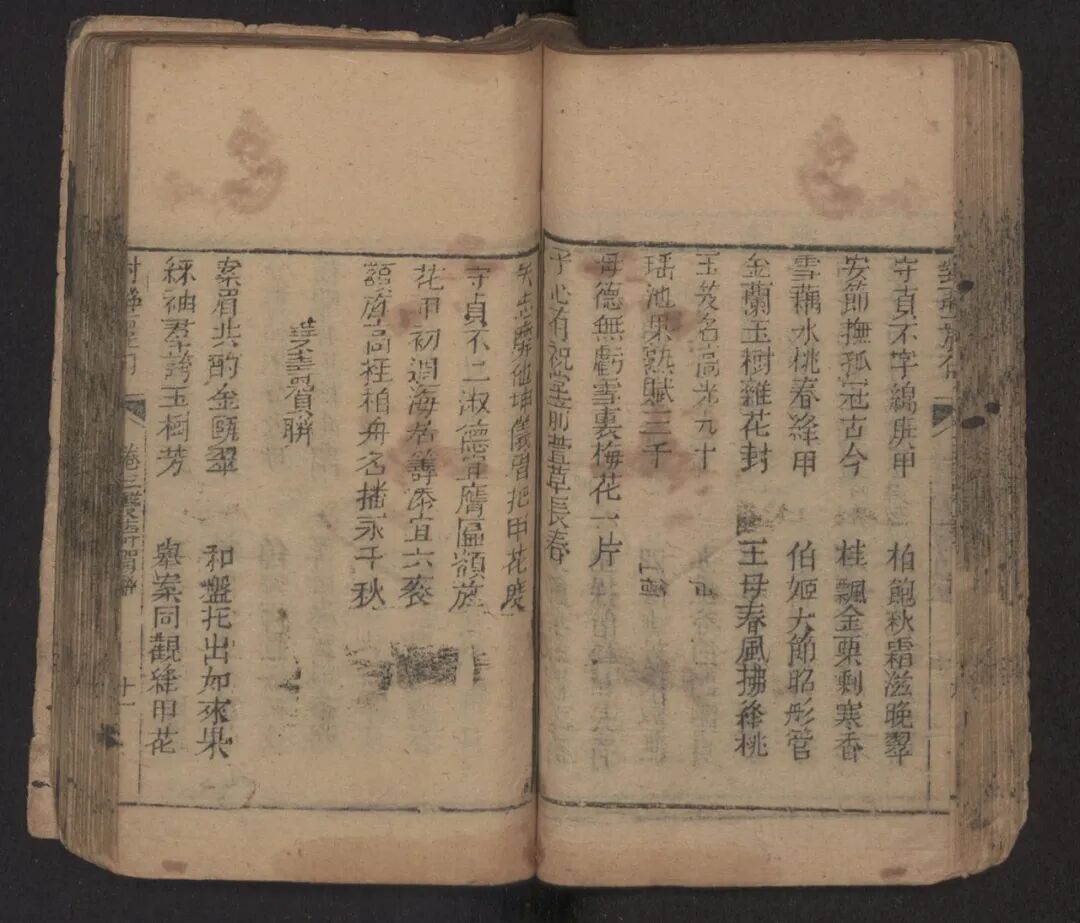 守貞不字綿庚甲 柏飽秋霜滋晚翠
安節撫孤冠古今 桂飄金栗剩寒香
雪藕水桃春絳甲 伯姬大節昭彤管
金蘭玉樹雜花封 王母春風拂絳桃
玉 名高 九十
瑶池果熟賦三千
母德無虧雪裏梅花一片
子心有祝堂前萱草長春
矢志靡他坤儀習把甲花度
守貞不二淑德宜膺匾額旌
花甲初週海居籌添宜六袠
齊眉高 柏舟名播永千秋
雙壽賀聯
案眉共酌金甌翠 和盤托出如來果
綵袖羣誇玉樹芳 舉案同觀絳甲花
卷三雙壽賀聯 十一